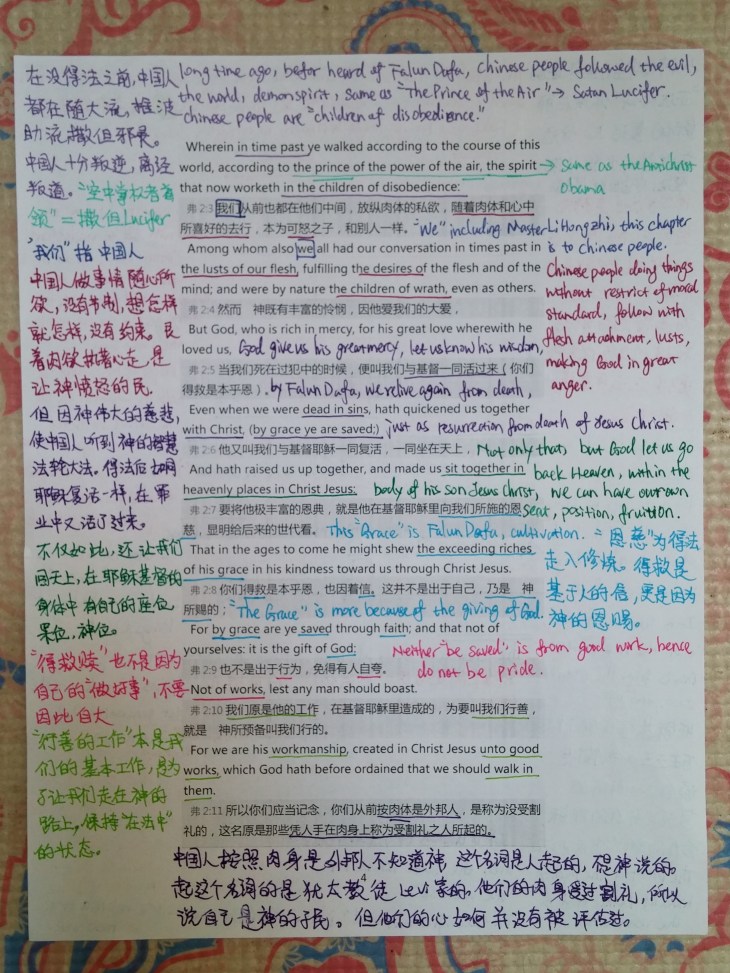 在没得法之前,中国人
都在随大流,推波
助流,撒但邪畏。
中国人十分叛逆,离经
叛道。"空中掌权者首
领"=撒但Lucifer
"我们"指中国人
中国人做事情随心所
欲,没有节制,想怎样
就怎样,没有约束。
着肉欲执著心走,是
让神愤怒的民。
但因神伟大的慈悲,
使中国人听到神的智慧
法轮大法。得法后如同
耶稣复活一样,在罪
业中又活了过来。
不仅如此,还让我们
同天上,在耶稣基督的
身体中有自己的座位,
果位,神位。
"得救赎"也不是因为
自己的"做好事",不要
因此自大
"行善的工作"本是我
们的基本工作,是为
了让我们走在神的
路上,保持"在法中"
的状态。
long time ago, befor heard of Falun Dafa, Chinese people followed the evil,
the world, demon spirit, same as "The Prince of the Air" → Satan Lucifer.
chinese people are "children of disobedience."
Wherein in time past ye walked according to the course of this
world, according to the prince of the power of the air, the spirit
that now worketh in the children of disobedience:
→ same as the Antichrist
Obama
弗 2:3 我们从前也都在他们中间,放纵肉体的私欲,随着肉体和心中
所喜好的去行,本为可怒之子,和别人一样。
"We" including Master Li Hongzhi, this chapter
is to Chinese people.
Among whom also we all had our conversation in times past in
the lusts of our flesh, fulfilling the desires of the flesh and of the
mind; and were by nature the children of wrath, even as others.
Chinese people doing things
without restrict of moral
standard, follow with
flesh attachment, lusts,
making God in great
anger.
弗 2:4 然而 神既有丰富的怜悯,因他爱我们的大爱,
But God, who is rich in mercy, for his great love wherewith he
loved us, God give us his great mercy, let us know his wisdom,
弗 2:5 当我们死在过犯中的时候,便叫我们与基督一同活过来(你们
得救是本乎恩)。by Falun Dafa, we relive again from death,
Even when we were dead in sins, hath quickened us together
with Christ, (by grace ye are saved;) just as resurrection from death of Jesus Christ.
弗 2:6 他又叫我们与基督耶稣一同复活,一同坐在天上,
And hath raised us up together, and made us sit together in
heavenly places in Christ Jesus:
Not only that, but God let us go
back Heaven, within the
body of his son Jesus Christ, we can have our own
seat, position, fruition.
弗 2:7 要将他极丰富的恩典,就是他在基督耶稣里向我们所施的恩
慈,显明给后来的世代看。This "Grace" is Falun Dafa, cultivation.
That in the ages to come he might shew the exceeding riches
of his grace in his kindness toward us through Christ Jesus.
"恩慈"为得法
走入修炼。得救是
基于人的信,更是因为
神的恩赐。
弗 2:8 你们得救是本乎恩,也因着信。这并不是出于自己,乃是 神
所赐的;"The Grace" is more because of the giving of God.
For by grace are ye saved through faith; and that not of
yourselves: it is the gift of God:
Neither "be saved" is from good work, hence
do not be pride.
弗 2:9 也不是出于行为,免得有人自夸。
Not of works, lest any man should boast.
弗 2:10 我们原是他的工作,在基督耶稣里造成的,为要叫我们行善,
就是 神所预备叫我们行的。
For we are his workmanship, created in Christ Jesus unto good
works, which God hath before ordained that we should walk in
them.
弗 2:11 所以你们应当记念,你们从前按肉体是外邦人,是称为没受割
礼的,这名原是那些凭人手在肉身上称为受割礼之人所起的。
中国人按照肉身是外邦人不知道神,这个名词是人起的,不是神说的。
4
起这个名词的是犹太教徒Levi家的,他们的肉身受过割礼,所以
说自己是神的子民。但他们的心如何并没有被评估过。